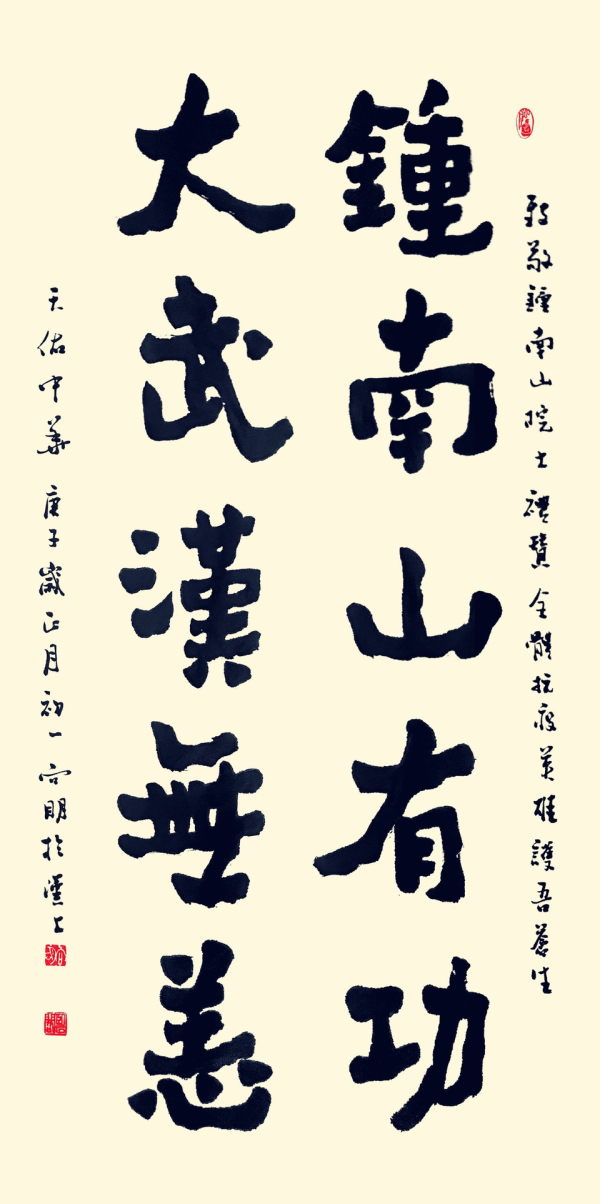 致敬鍾南山院士禮贊全體抗疫英雄護吾蒼生
鍾南山有功
大武漢無恙
天佑中華 庚子歲正月初一向明於上